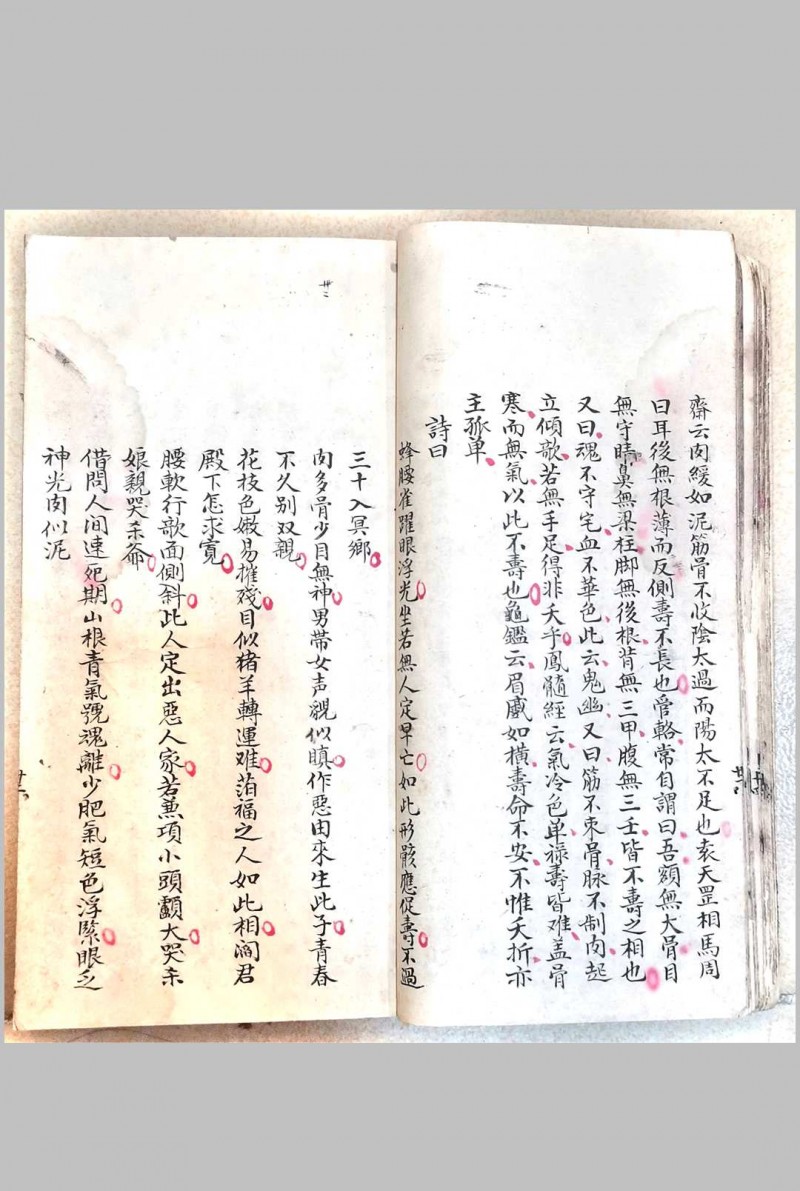 齋云肉緩如泥筋骨不收陰太過而陽太不足也袁天罡相馬周
曰耳後無根薄而反側壽不長也管輅常自謂曰吾額無大骨目
無守睛鼻無梁柱脚無後根背無三甲腹無三壬皆不壽之相也
又曰魂不守宅血不華色此云鬼幽又曰筋不束骨脉不制肉起
立傾欹若無手足得非夭乎鳳髓經云氣冷色单祿壽皆难盖骨
寒而無氣以此不壽也龜鑑云眉感如橫壽命不安不惟夭折亦
主孤单
詩曰
蜂腰雀躍眼浮光坐若無人定早亡如此形骸應促壽不過
三十入冥鄉
肉多骨少目無神男带女声覩似瞋作惡由來生此子青春
不久别双親
花枝色嫩易摧殘目似猪羊轉運难萡福之人如此相阎君
殿下怎求寛
腰軟行歌面側斜此人定出惡人家若兼項小頭顱大哭杀
娘親哭杀爺
借問人间速死期山根青氣號魂離少肥氣短色浮緊眼乏
神光肉似泥
廿二